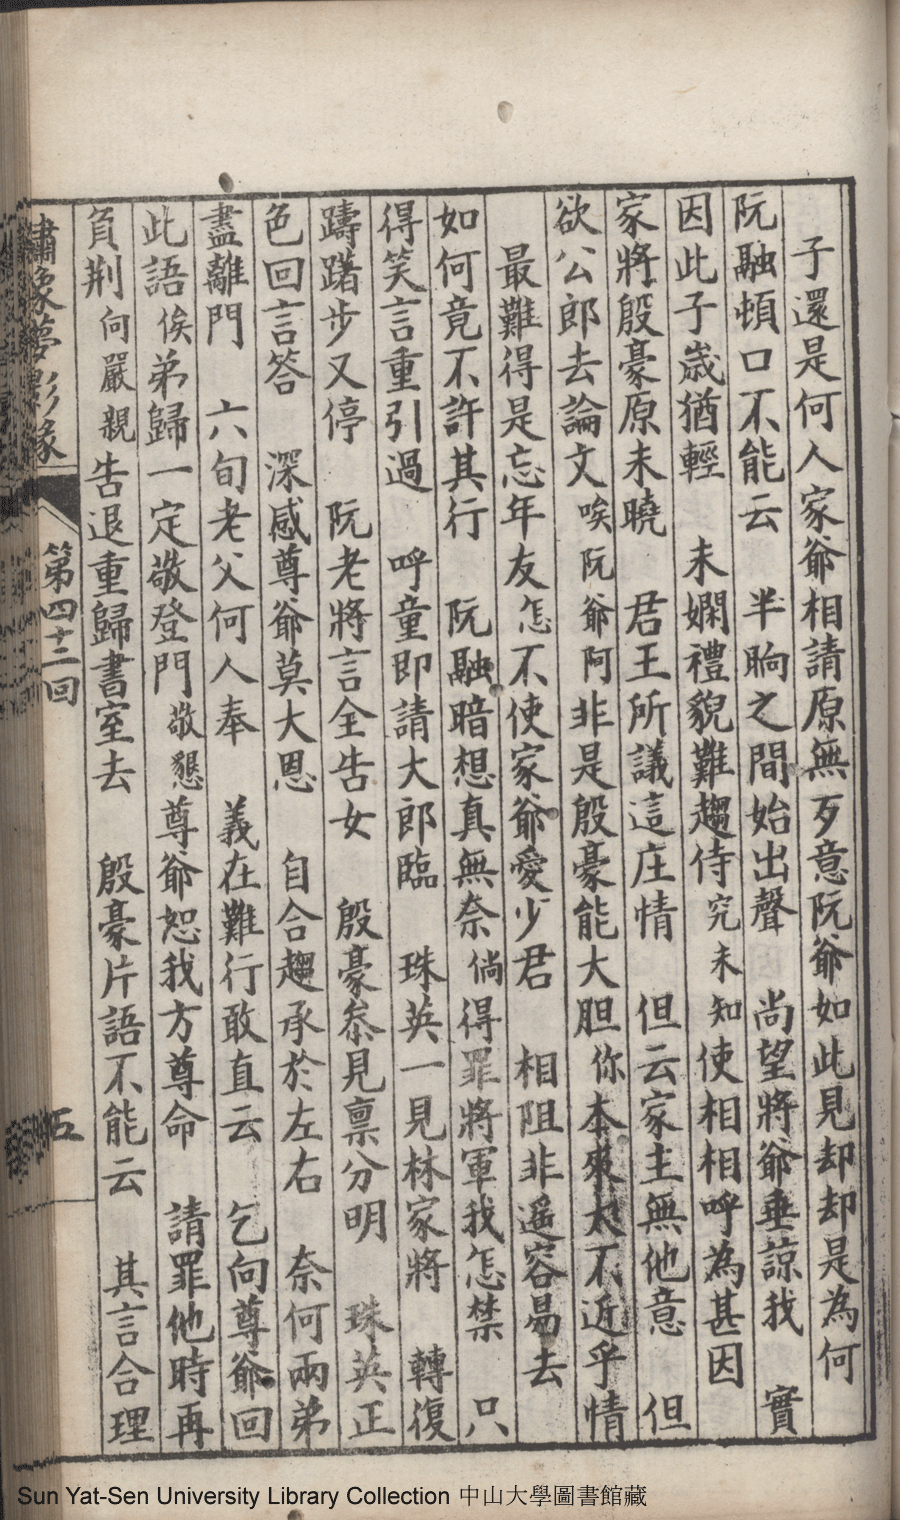 子還是何人家爺相請原無歹意阮爺如此見却却是為何
阮融頓口不能云　半晌之間始出聲　尚望將爺垂諒我　實
因此子歳猶輕　未嫻禮貌難趨侍究未知使相相呼為甚因
家將殷豪原未曉　君王所議這庄情　但云家主無他意　但
欲公郎去論文唉阮爺阿非是殷豪能大胆你本來太不近乎情
最難得是忘年友怎不使家爺愛少君　相阻非遥容易去
如何竟不許其行　阮融暗想真無奈倘得罪將軍我怎禁　只
得笑言重引過　呼童即請大郎臨　珠英一見林家將　轉復
躊躇步又停　阮老將言全告女　殷豪叅見禀分明　珠英正
色回言答　深感尊爺莫大恩　自合趨承於左右　奈何兩弟
盡離門　六旬老父何人奉　義在難行敢直云　乞向尊爺回
此語俟弟歸一定敬登門敬懇尊爺恕我方尊命　請罪他時再
負荆向嚴親告退重歸書室去　殷豪片語不能云　其言合理
繡像夢影緣　第四十二回　五
Sun Yat-Sen University Library Collection 中山大學圖書館藏